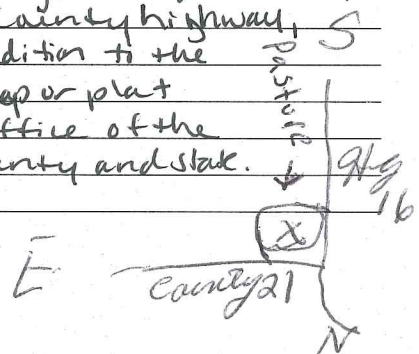 county highway,
dition to the
ap or plat
ffice of the
nty and state.
S
Pasture
Hg
16
X
E
County 21
N